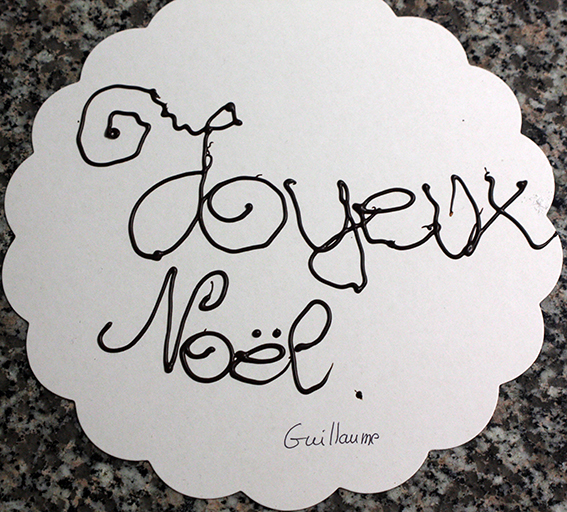 Joyeux
Noël.
Guillaume